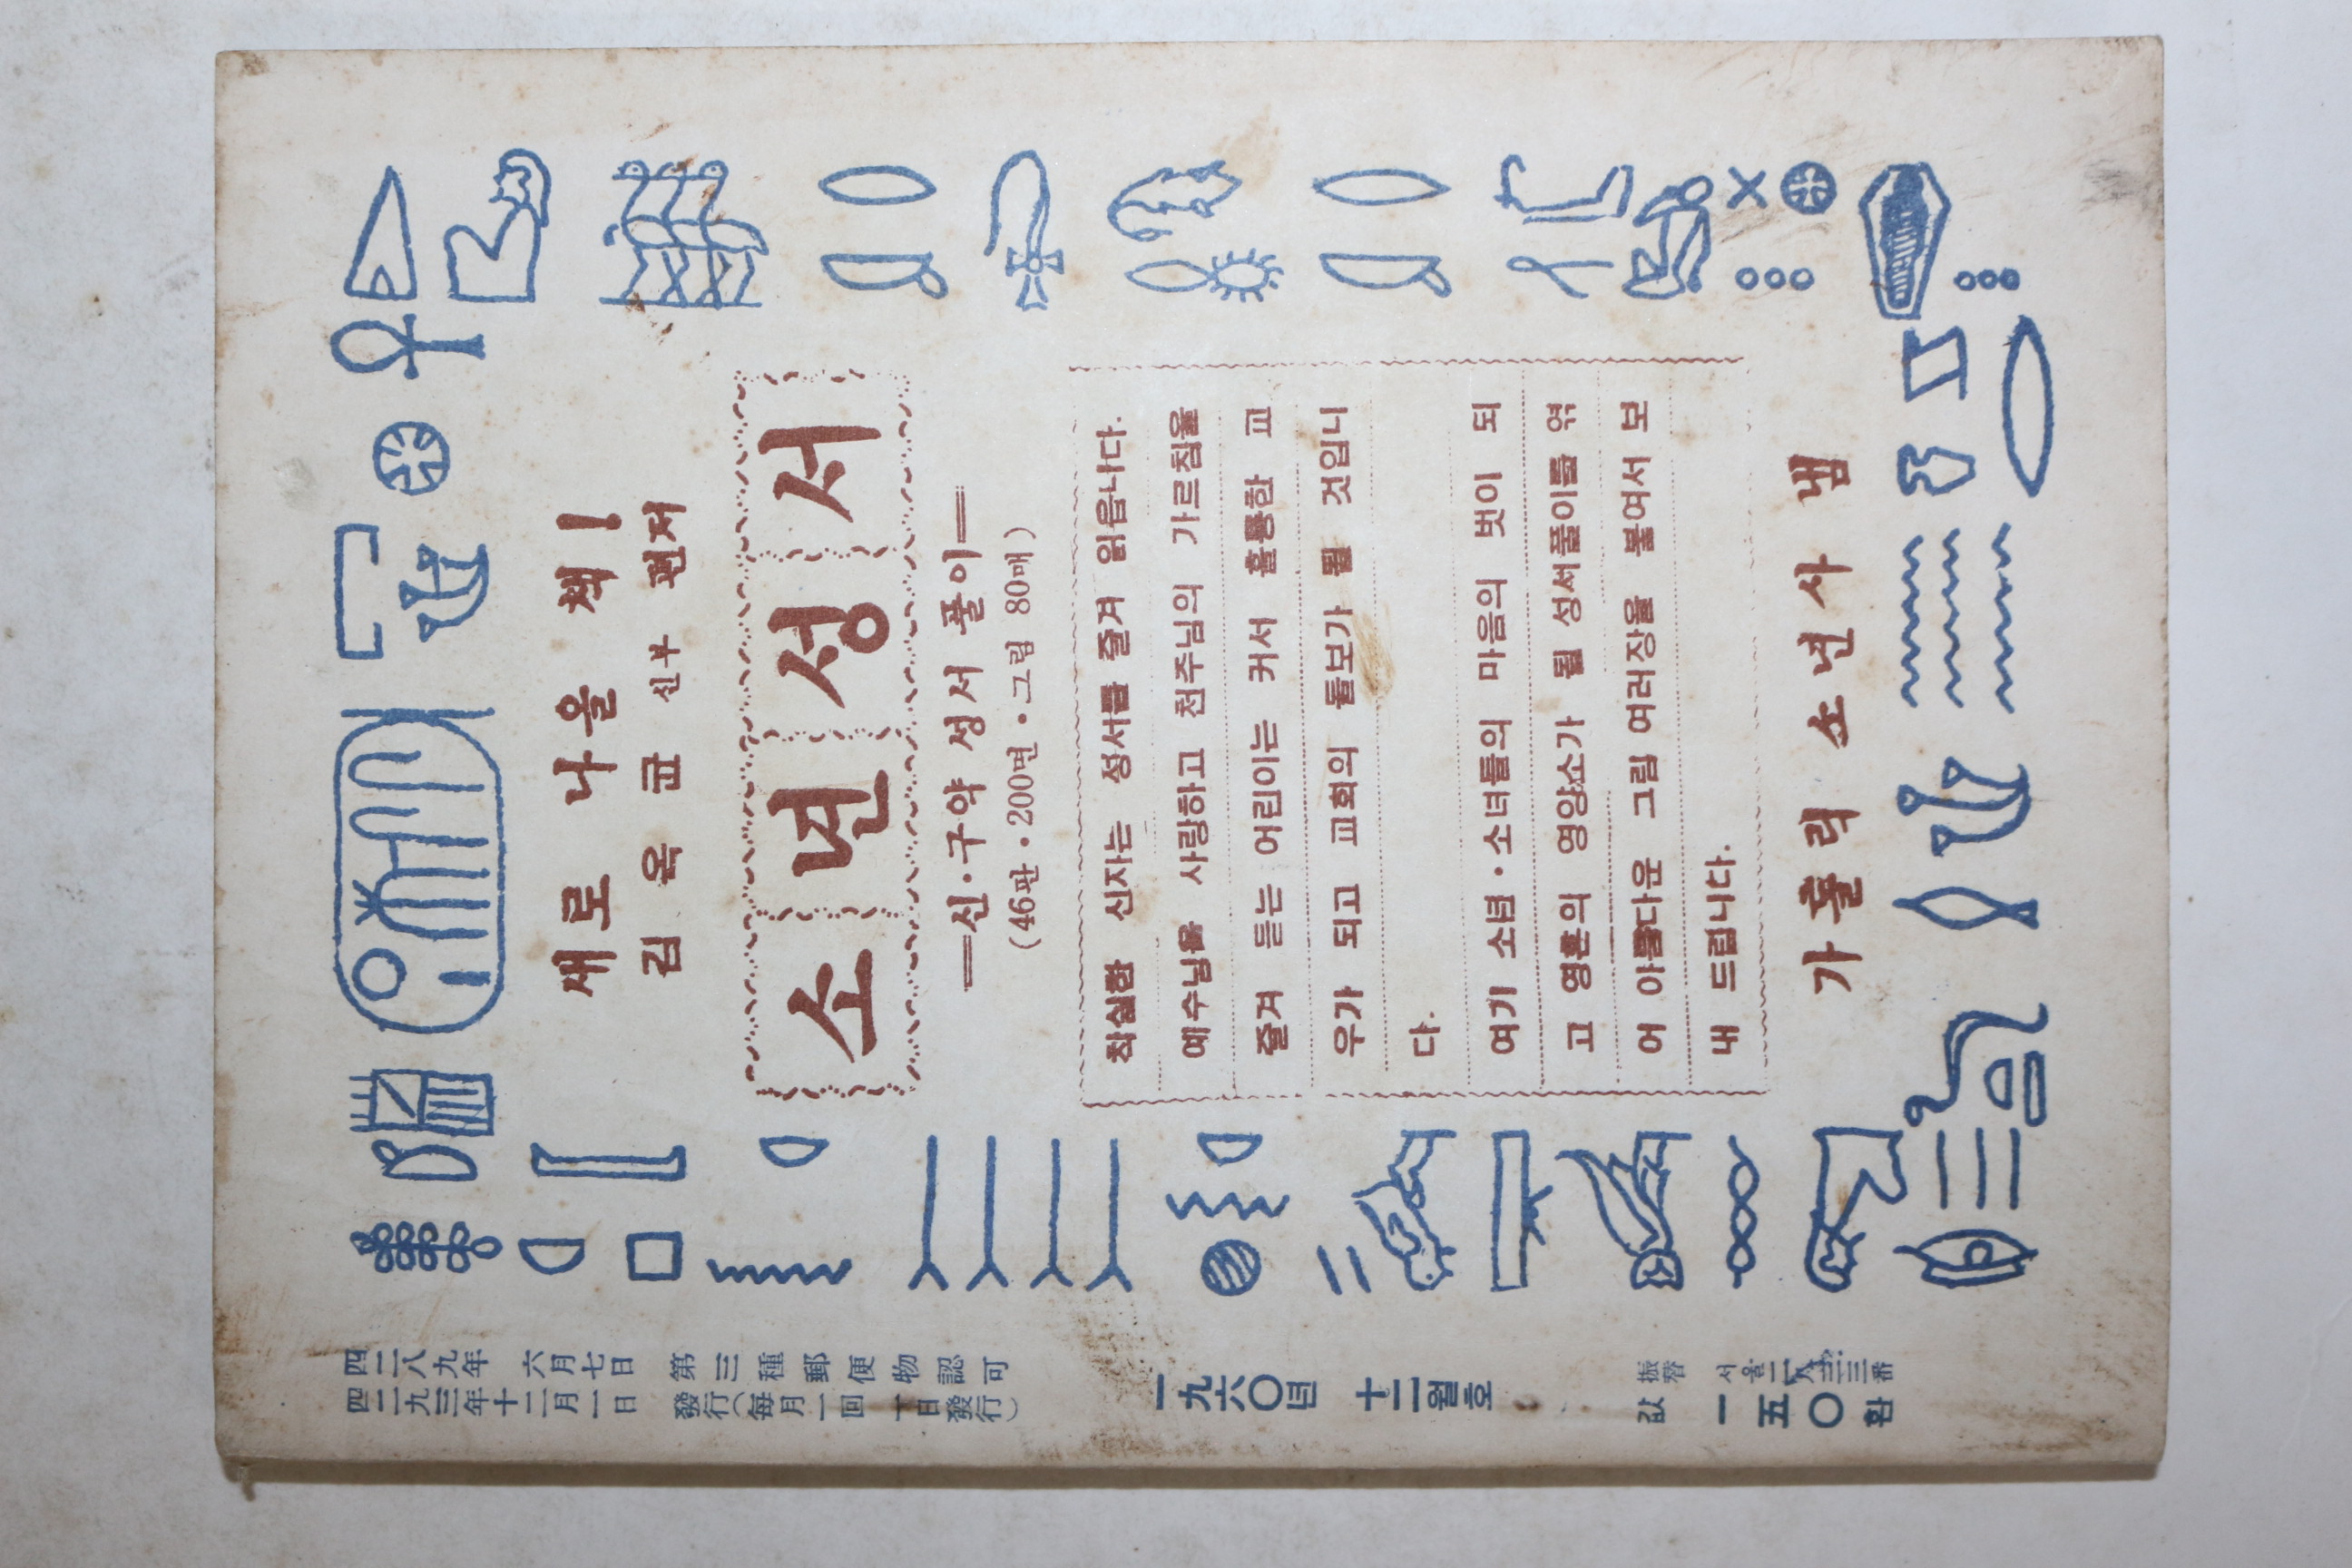 새로 나올 책!
김 옥 균 신부 편저
소년성서
=신·구약 성서 풀이=
(46판·200면·그림 80매)
착실한 신자는 성서를 즐겨 읽읍니다.
예수님을 사랑하고 천주님의 가르침을
즐겨 듣는 어린이는 커서 훌륭한 교
우가 되고 교회의 돌보가 될 것입니
다.
여기 소년·소녀들의 마음의 벗이 되
고 영혼의 영양소가 될 성서풀이를 엮
어 아름다운 그림 여러장을 붙여서 보
내 드립니다.
가톨릭 소년사 냄
四二八九年 六月七日 第三種郵便物認可
四二九三年十二月一日 發行(每月一回 一日發行)
一九六〇년 十二월호
값 一五〇환
振替 서울